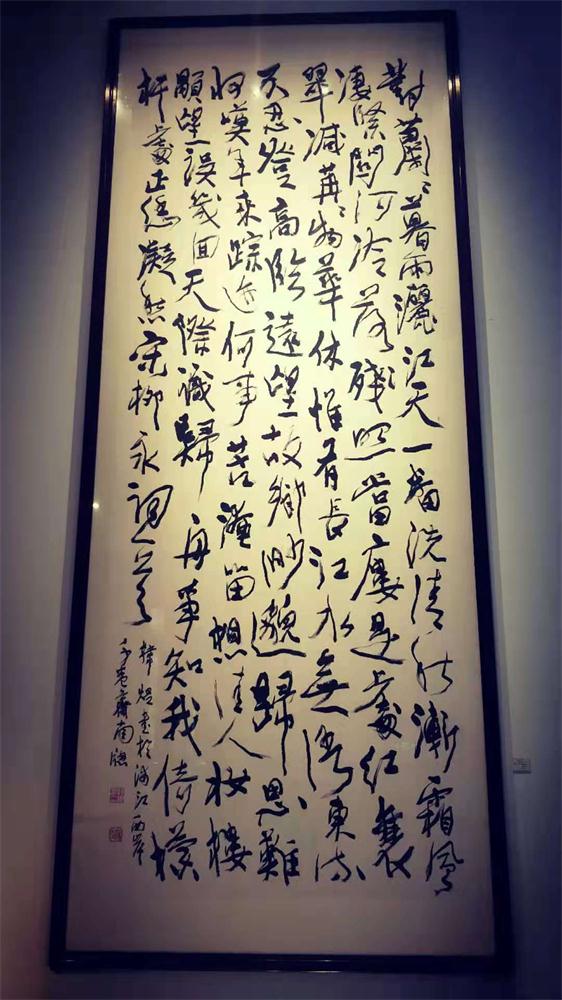 對蕭〻暮雨灑江天一番洗清秋漸霜風
淒緊關河冷落殘照當樓是處紅衰
翠減苒〻物華休惟有長江水無語東流
不忍登高臨遠望故鄉渺邈歸思難
收嘆年來踪迹何事苦淹留想佳人妝樓
顒望誤幾回天際識歸舟爭知我倚欄
杆處正恁凝愁宋柳永詞一首
書於江西岸
齋南牕